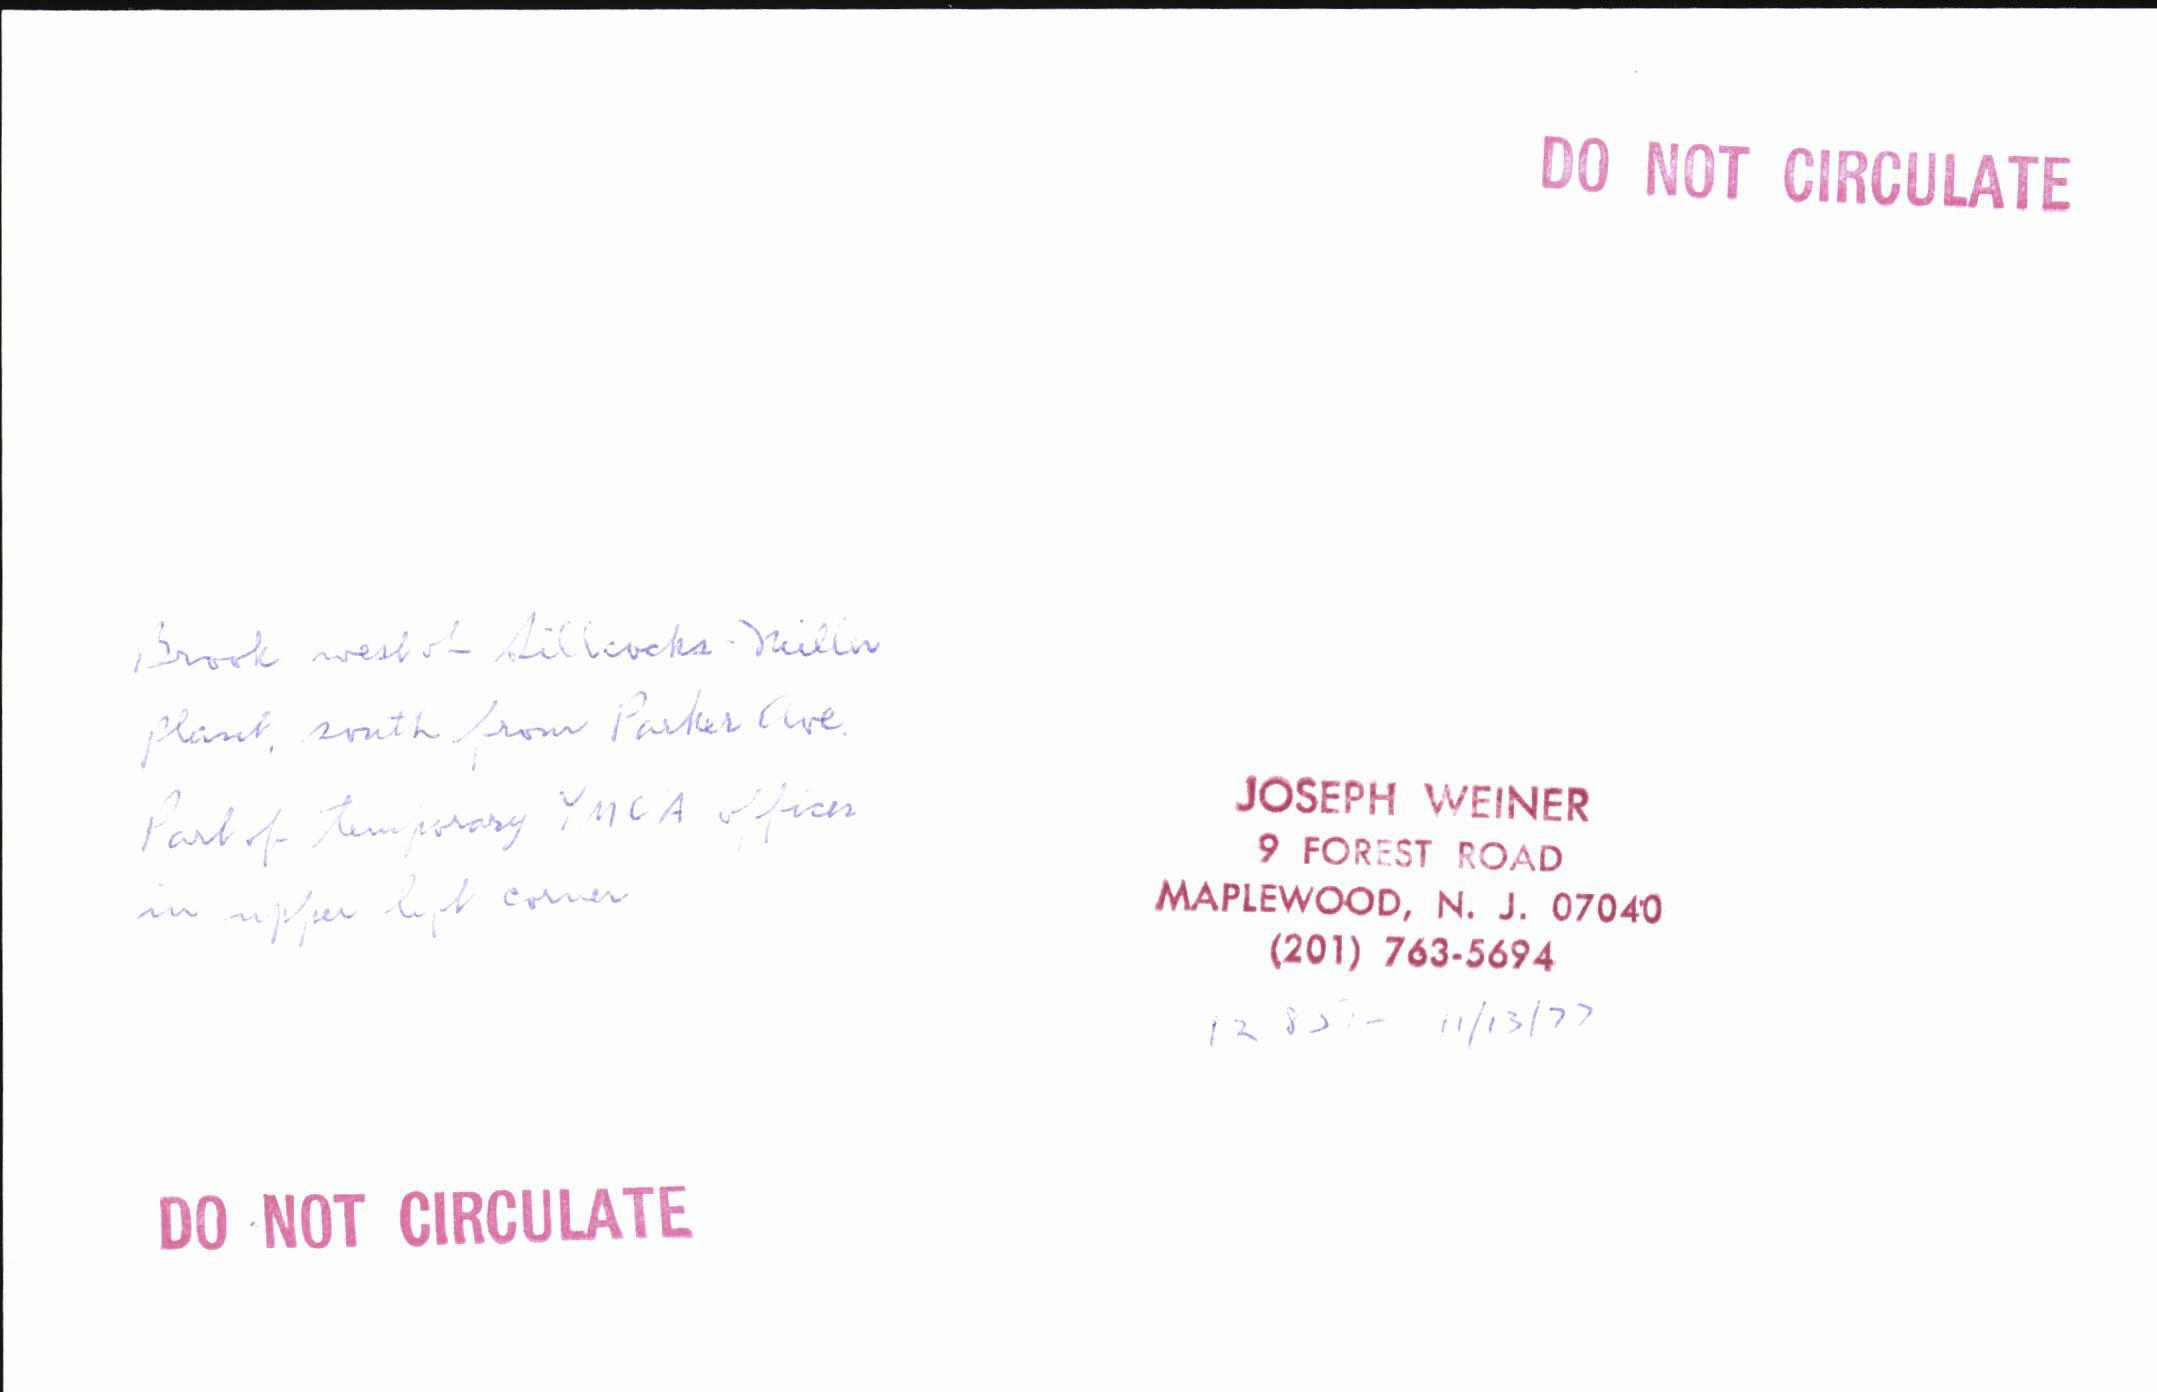 DO NOT CIRCULATE
Brook west of Sillcocks-Miller
plant, south from Parker Ave.
Part of temporary YMCA offices
in upper left corner
JOSEPH WEINER
9 FOREST ROAD
MAPLEWOOD, N. J. 07040
(201) 763-5694
11/13/77
DO NOT CIRCULATE